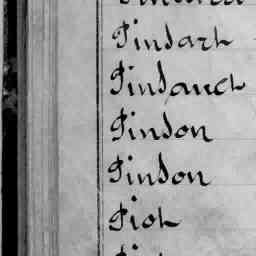 Pindart
Pindauct
Pindon
Pindon
Piot